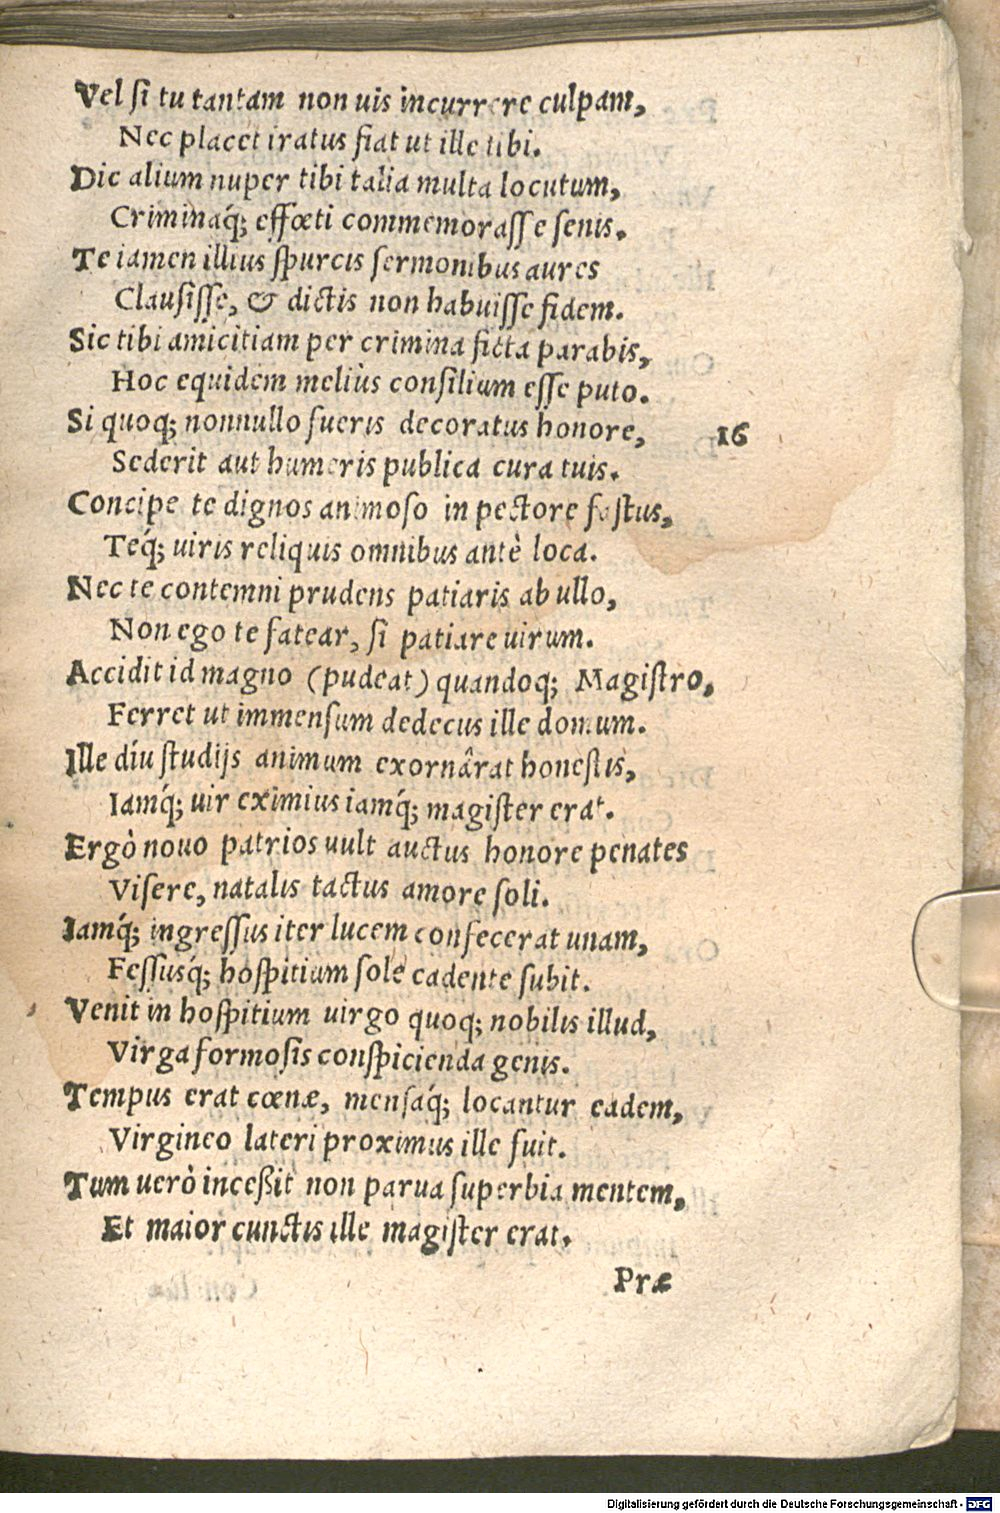 Vel si tu tantam non uis incurrere culpam,
Nec placet iratus fiat ut ille tibi.
Dic alium nuper tibi talia multa locutum,
Criminaq́; effœti commemorasse senis.
Te tamen illius spurcis sermonibus aures
Clausisse, & dictis non habuisse fidem.
Sic tibi amicitiam per crimina ficta parabis,
Hoc equidem melius consilium esse puto.
Si quoq; nonnullo fueris decoratus honore, 16
Sederit aut humeris publica cura tuis.
Concipe te dignos animoso in pectore fastus,
Teq́; uiris reliquis omnibus antè loca.
Nec te contemni prudens patiaris ab ullo,
Non ego te fatear, si patiare uirum.
Accidit id magno (pudeat) quandoq; Magistro,
Ferret ut immensum dedecus ille domum.
Ille diu studijs animum exornârat honestis,
Iamq́; uir eximius iamq́; magister erat.
Ergò nouo patrios uult auctus honore penates
Visere, natalis tactus amore soli.
Iamq́; ingressus iter lucem confecerat unam,
Fessusq́; hospitium sole cadente subit.
Venit in hospitium uirgo quoq; nobilis illud,
Virga formosis conspicienda genis.
Tempus erat cœnæ, mensaq́; locantur eadem,
Virgineo lateri proximus ille fuit.
Tum uerò inceßit non parua superbia mentem,
Et maior cunctis ille magister erat.
Præ
Digitalisierung gefördert durch die Deutsche Forschungsgemeinschaft - DFG